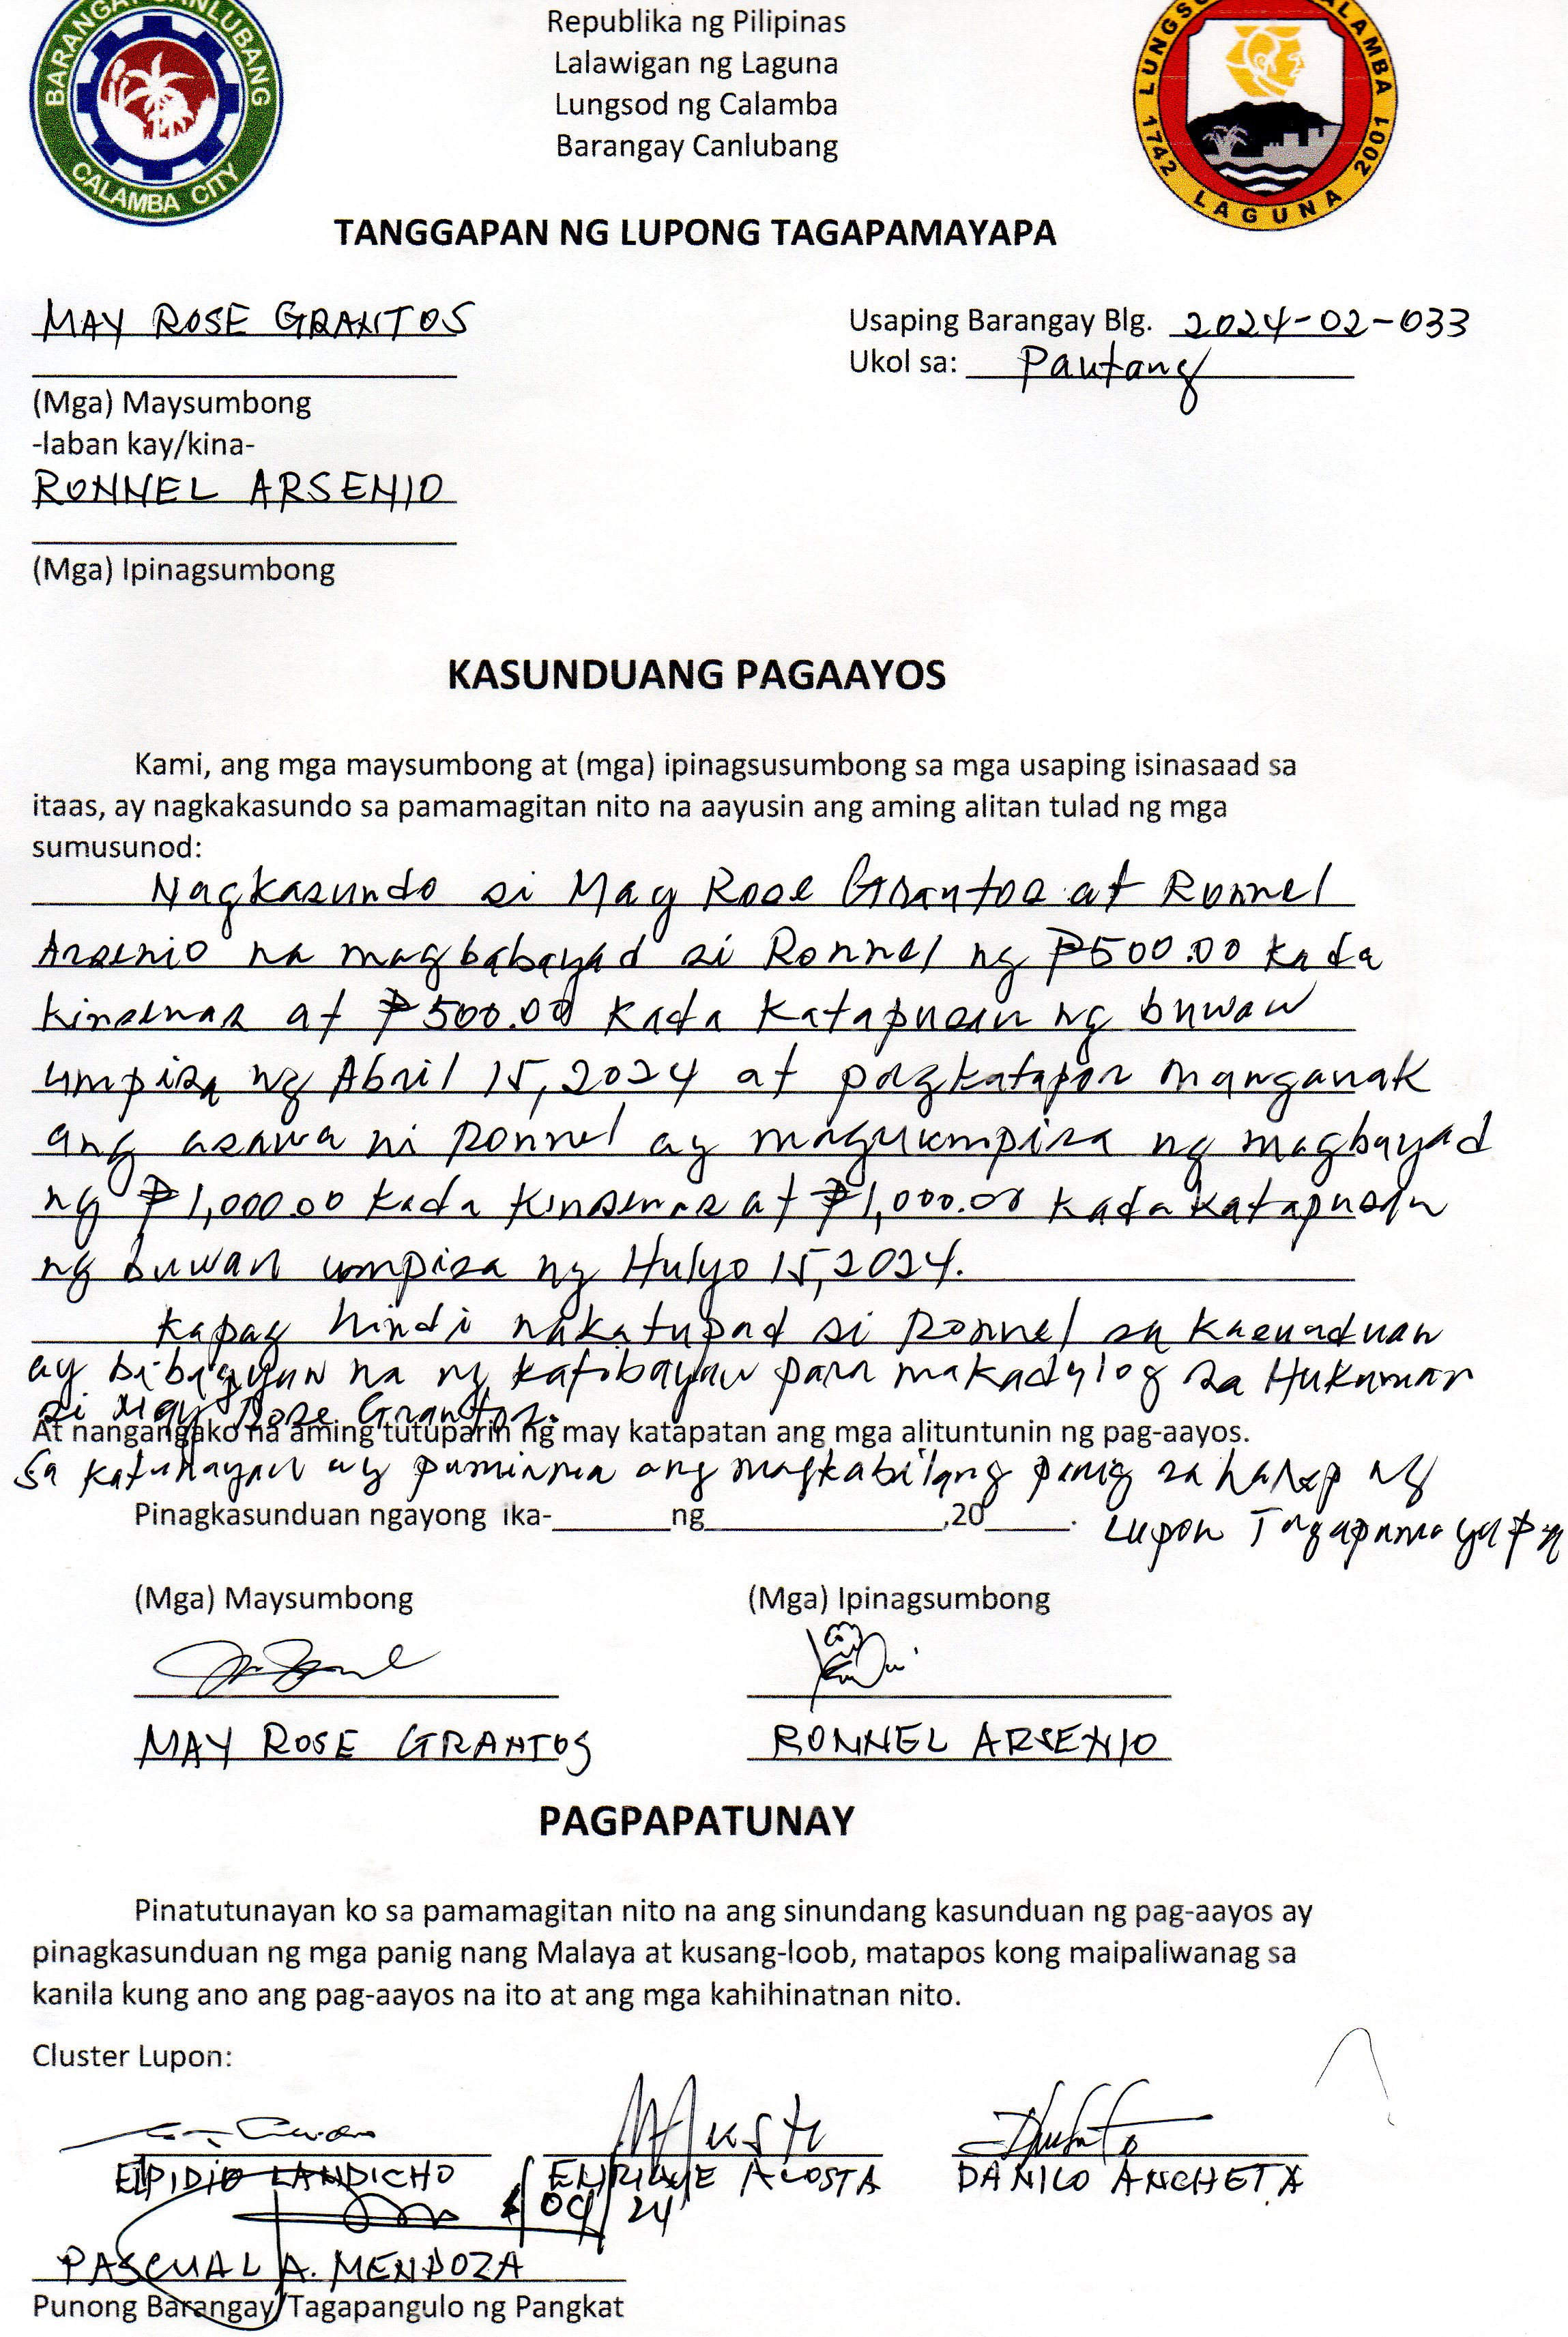 BARANGAY CANLUBANG
CALAMBA CITY
Republika ng Pilipinas
Lalawigan ng Laguna
Lungsod ng Calamba
Barangay Canlubang
LUNGSOD CALAMBA
1742 LAGUNA 2001
TANGGAPAN NG LUPONG TAGAPAMAYAPA
MAY ROSE GRANTOS
Usaping Barangay Blg. 2024-02-033
Ukol sa: Pautang
(Mga) Maysumbong
-laban kay/kina-
RONNEL ARSENIO
(Mga) Ipinagsumbong
KASUNDUANG PAGAAYOS
Kami, ang mga maysumbong at (mga) ipinagsusumbong sa mga usaping isinasaad sa
itaas, ay nagkakasundo sa pamamagitan nito na aayusin ang aming alitan tulad ng mga
sumusunod:
Nagkasundo si May Rose Grantos at Ronnel
Arsenio na magbabayad si Ronnel ng ₱500.00 kada
kinsenas at ₱500.00 kada katapusan ng buwan
umpisa ng Abril 15, 2024 at pagkatapos manganak
ang asawa ni Ronnel ay maguumpisa ng magbayad
ng ₱1,000.00 kada kinsenas at ₱1,000.00 kada katapusan
ng buwan umpisa ng Hulyo 15, 2024.
Kapag hindi nakatupad si Ronnel sa kasunduan
ay bibigyan na ng katibayan para makadulog sa Hukuman
si May Rose Grantos.
At nangangako na aming tutuparin ng may katapatan ang mga alituntunin ng pag-aayos.
Sa katunayan ay pumirma ang magkabilang panig sa harap ng
Lupon Tagapamayapa
Pinagkasunduan ngayong ika-_______ng______________,20_____.
(Mga) Maysumbong (Mga) Ipinagsumbong
MAY ROSE GRANTOS RONNEL ARSENIO
PAGPAPATUNAY
Pinatutunayan ko sa pamamagitan nito na ang sinundang kasunduan ng pag-aayos ay
pinagkasunduan ng mga panig nang Malaya at kusang-loob, matapos kong maipaliwanag sa
kanila kung ano ang pag-aayos na ito at ang mga kahihinatnan nito.
Cluster Lupon:
ELPIDIO LANDICHO ENRIQUE ACOSTA DANILO ANCHETA
PASCUAL A. MENDOZA
Punong Barangay/Tagapangulo ng Pangkat